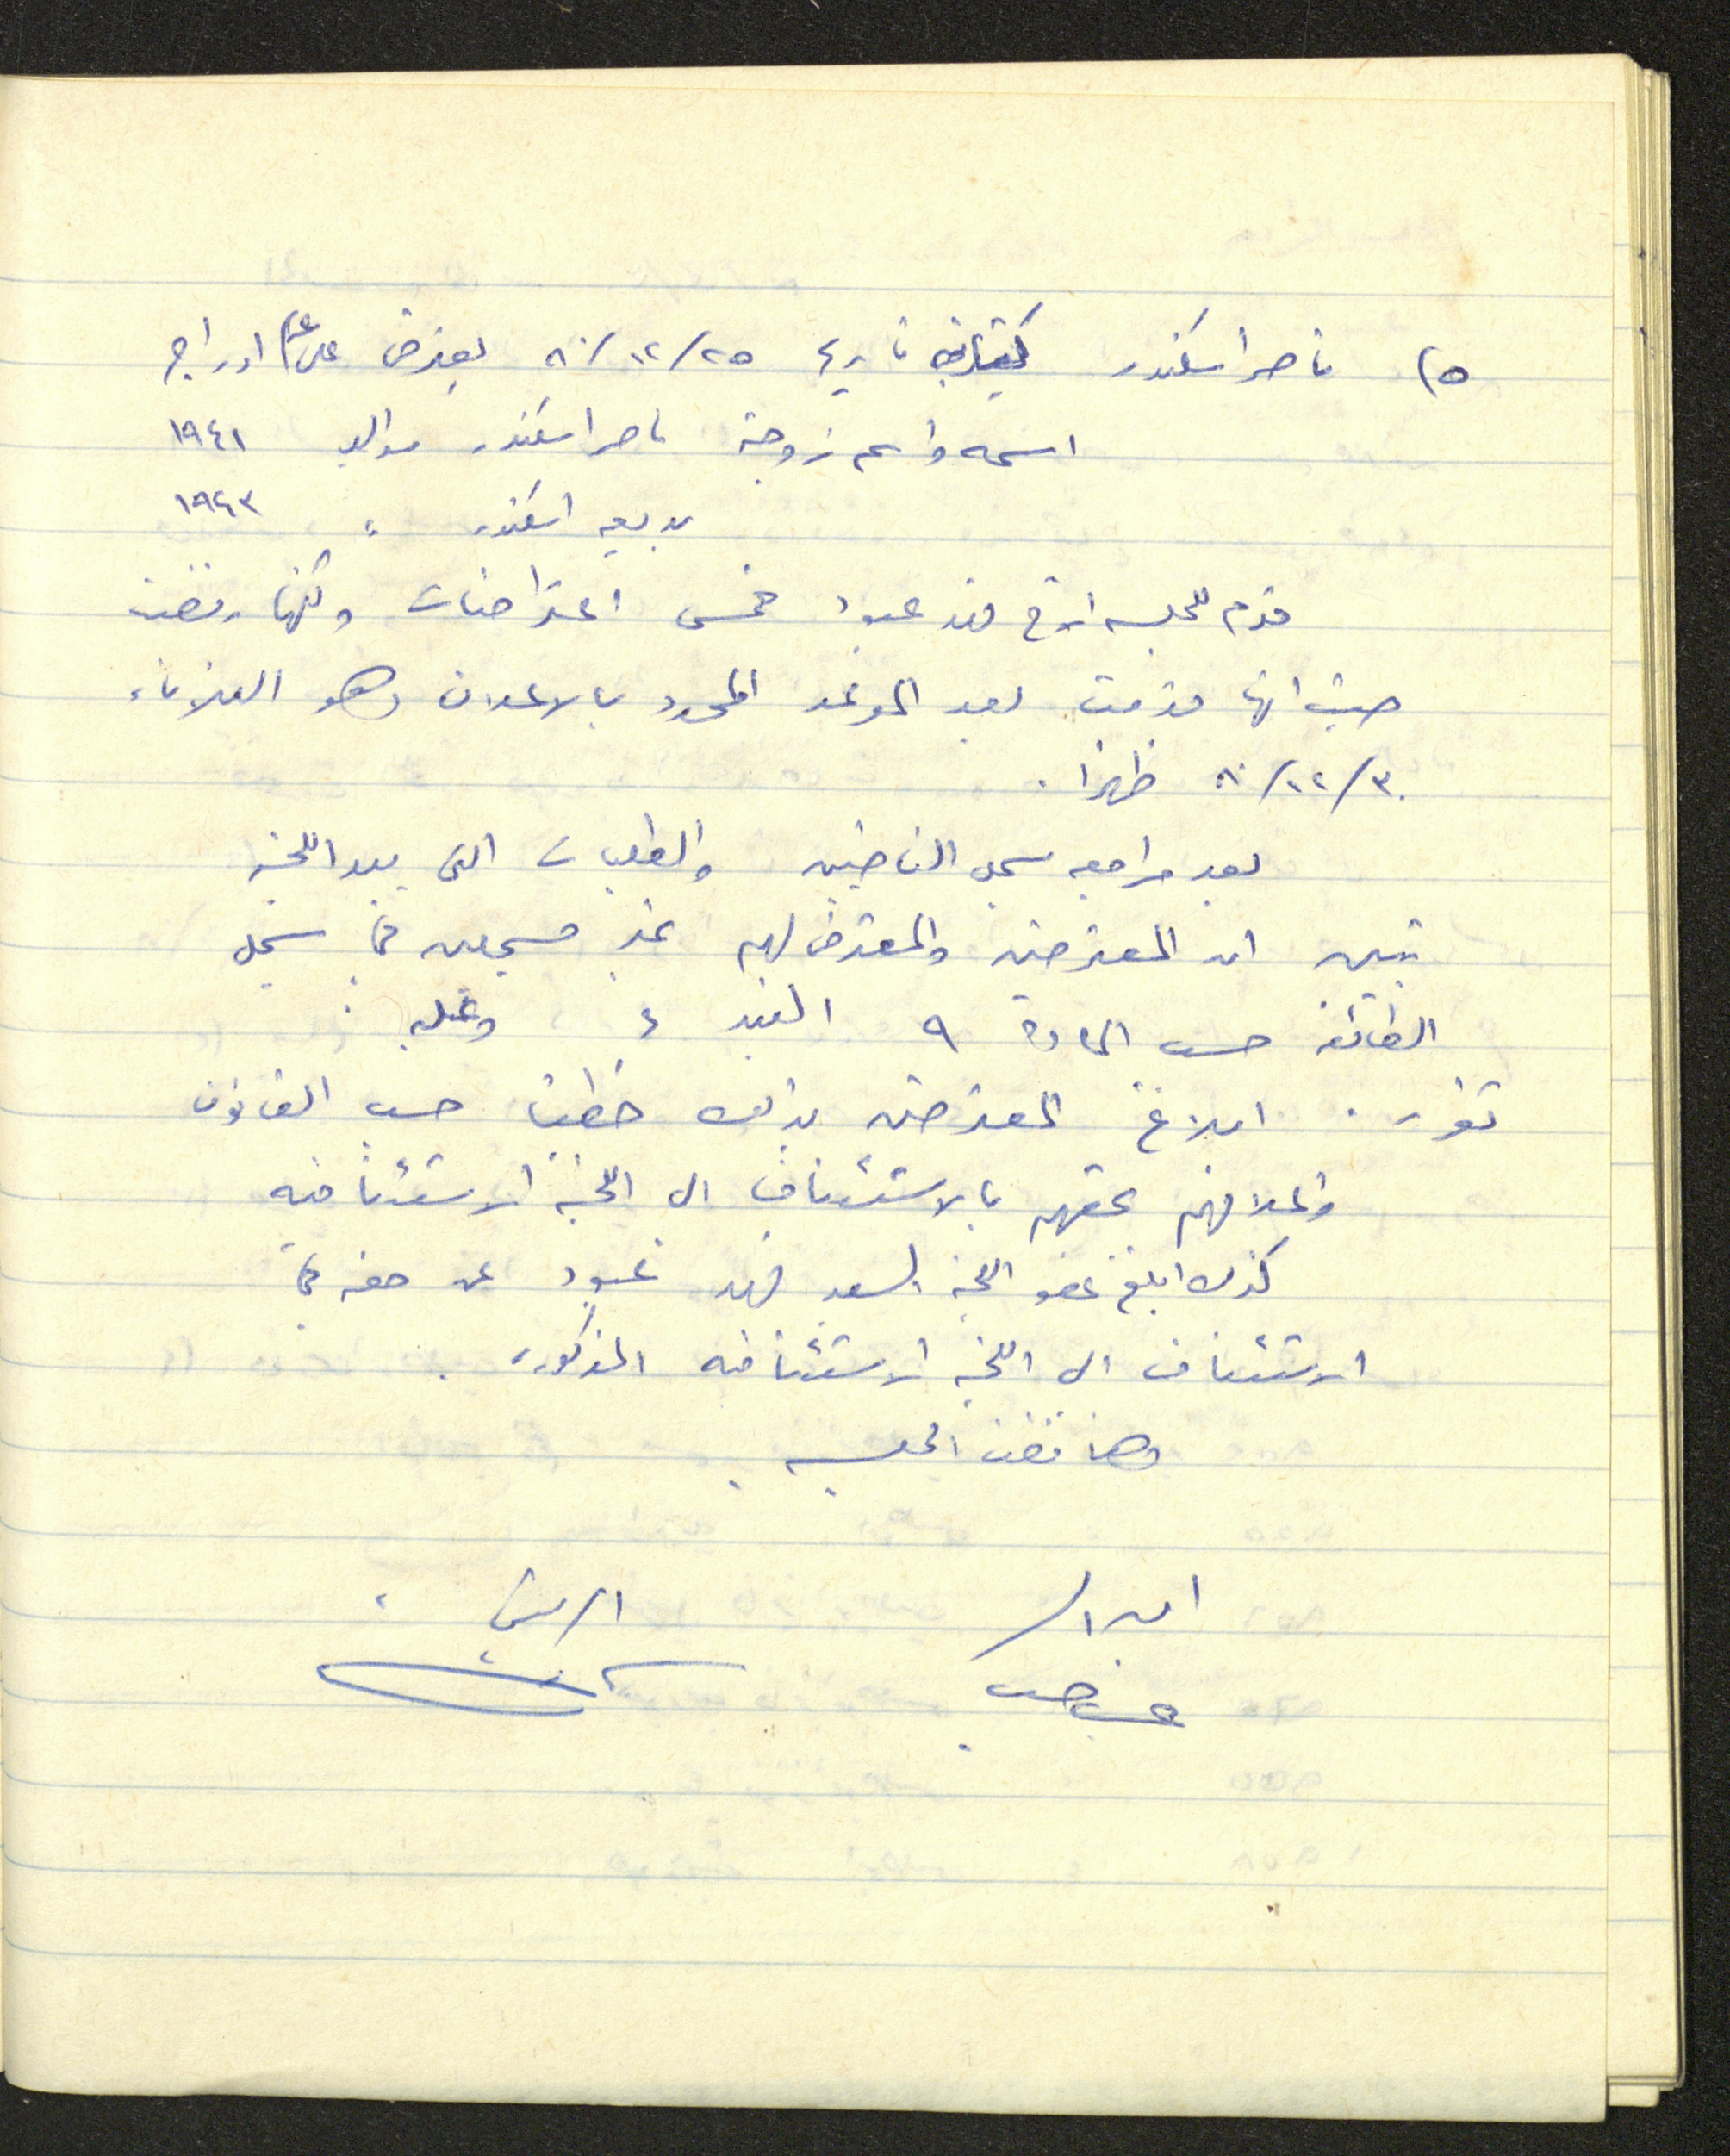 ٥) ناصر اسكندر كتابه تاريخ ٢٥/١٢/٨٠ يعترض على عدم ادراج
اسمه واسم زوجته ناصر اسكندر مواليد ١٩٤١
بديعه اسكندر " ١٩٤٣
قدم للجلسه الاخ فهد عبود خمس اعتراضات ولكنها رفضت
حيث انها قدمت بعد الموعد المحدد بالاعلان وهو الثلاثاء
٣٠/١٢/٨٠ ظهرا .
بعد مراجعه سجل الناخبين والطلبات التي بيد اللجنه
تبين ان المعترضين والمعترض لهم غير مسجلين في سجل
الطائفه حسب الماده ٩ البند ٤ وعليه :
تقرر . ابلاغ المعترضين بذلك خطيا حسب القانون
واعلامهم بحقهم بالاستئناف الى اللجنه الاستئنافيه
كذلك ابلغ عضو اللجنه السيد فهد عبود عن حقه في
الاستئناف الى اللجنه الاستئنافيه المذكوره .
وهنا فضت الجلسه
امين السر الرئيس